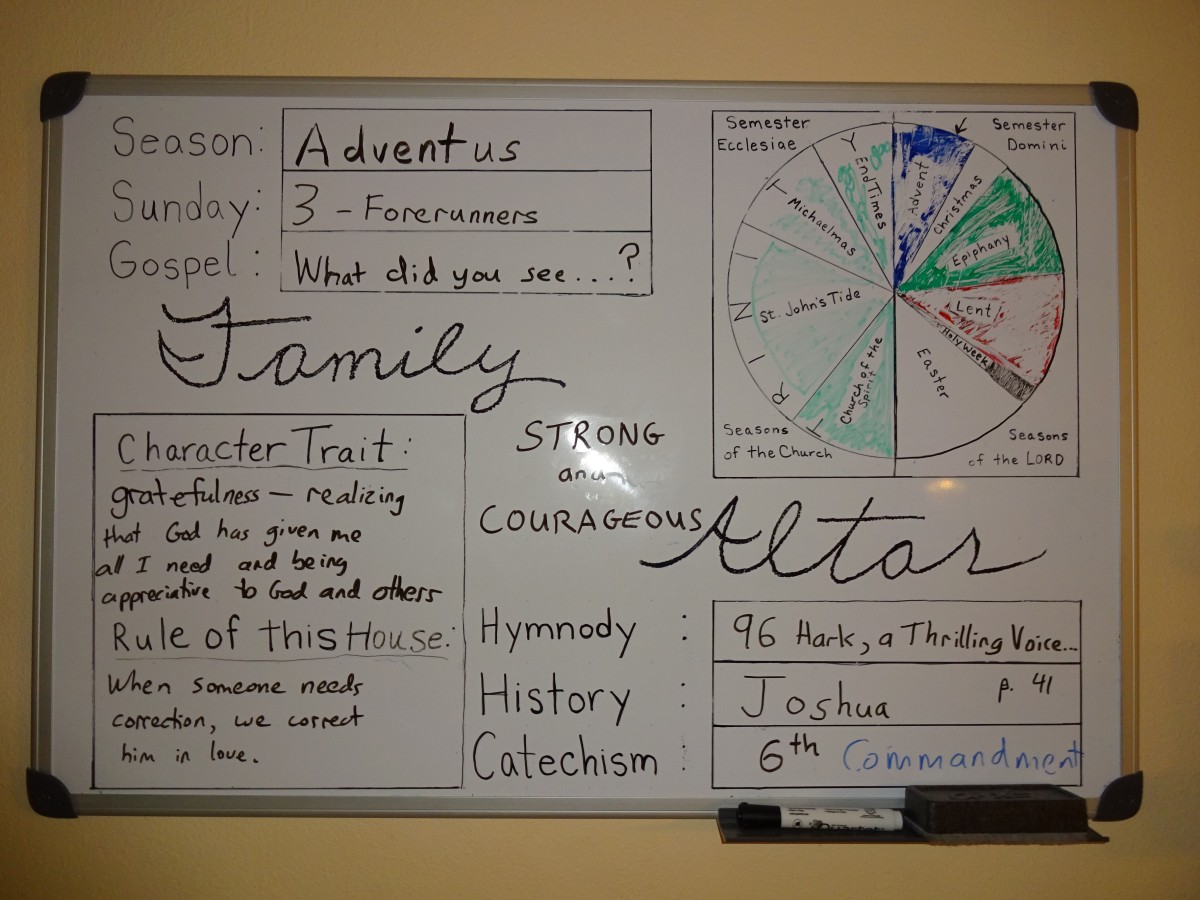 Season: Adventus
Sunday: 3 - Forerunners
Gospel: What did you see....?
Semester
Ecclesiae
Semester
Domini
Advent
Christmas
Epiphany
Lent
Holy Week
Easter
Church of the
Spirit
St. John's Tide
Michaelmas
End Times
TRINITY
Seasons
of the Church
Seasons
of the LORD
Family
Altar
STRONG
and
COURAGEOUS
Character Trait:
gratefulness — realizing
that God has given me
all I need and being
appreciative to God and others
Rule of this House:
When someone needs
correction, we correct
him in love.
Hymnody : 96 Hark, a Thrilling Voice...
History : Joshua p. 41
Catechism : 6th Commandment